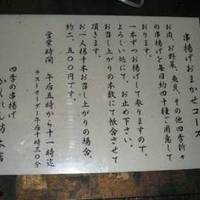 串揚げおまかせコース
お肉、お野菜、魚貝、その他四季折々
の串揚げを毎日約四十種ご用意して
おります。
一本ずつお揚げして参りますので、
よろしい処にて、お止め下さい。
お召し上がりの本数にて計算させて
頂きます。
お一人様十本お召し上がりの場合、
約二、五〇〇円です。
営業時間 午后五時から十一時迄
ラストオーダー午后十時三〇分
四季の串揚げ
本店